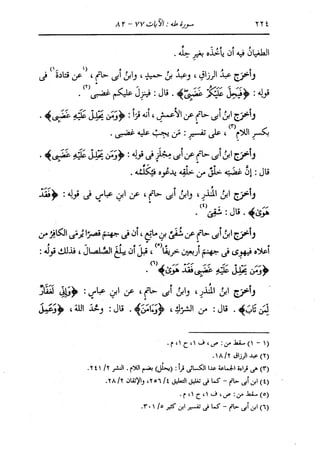 ٢٢٤ سورة طه : الآيات ٧٧ - ٨٢
الطغيان فيه أن يأخذه بغير حِلِّه .
وأخرج عبدُ الرزاقِ ، وعبدُ بنُ حميدٍ ، وابنُ أبى حاتمٍ ، (١)عن قتادةَ(١) فى
قوله : ﴿فَيَحِلَّ عَلَيْكُمْ غَضَبِيۖ﴾ . قال : فينزِلَ عليكم غضبى(٢) .
وأخرَج ابنُ أبى حاتمٍ عن الأعمشِ ، أنه قرأ : ﴿وَمَن يَحْلِلْ عَلَيْهِ غَضَبِي﴾ .
بكسرِ اللامِ(٣) ، على تفسيرِ : مَن يجِبْ عليه غضبى .
وأخرَج ابنُ أبى حاتمٍ عن أبى مِجْلَزٍ فى قولِه : ﴿وَمَن يَحْلِلْ عَلَيْهِ غَضَبِي﴾ .
قال : إنَّ غضبَه خَلْقٌ مِن خلقِه يدعُوه فيُكلِّمُه .
وأخرَج ابنُ المنذرِ ، وابنُ أبى حاتمٍ ، عن ابنِ عباسٍ فى قوله : ﴿فَقَدْ
هَوَىٰ﴾ . قال : شقِىَ(٤) .
وأخرَج ابنُ أبى حاتمٍ عن شُفَىِّ بنِ ماتعٍ ، أن فى جهنمَ قصرًا يُرمَى الكافرُ من
أعلاه فيهوِى فى جهنمَ أربعين خريفًا(٥) ، قبلَ أن يبلغَ الصَّلصالَ ، فذلك قولُه :
﴿وَمَن يَحْلِلْ عَلَيْهِ غَضَبِي فَقَدْ هَوَىٰ﴾(٦) .
وأخرَج ابنُ المنذرِ ، وابنُ أبى حاتمٍ ، عن ابنِ عباسٍ : ﴿وَإِنِّي لَغَفَّارٌ
لِّمَن تَابَ﴾ . قال : من الشركِ ، ﴿وَءَامَنَ﴾ . قال : وحَّد اللهَ ، ﴿وَعَمِلَ
(١ - ١) سقط من : ص ، ف ١ ، ح ١ ، م .
(٢) عبد الرزاق ١٨/٢ .
(٣) هى قراءة الجماعة عدا الكسائى قرأ : (يحلُل) بضم اللام . النشر ٢٤١/٢ .
(٤) ابن أبى حاتم - كما فى تغليق التعليق ٢٥٦/٤ ، والإتقان ٢٨/٢ .
(٥) سقط من : ص ، ف ١ ، ح ١ ، م .
(٦) ابن أبى حاتم - كما فى تفسير ابن كثير ٣٠١/٥ .